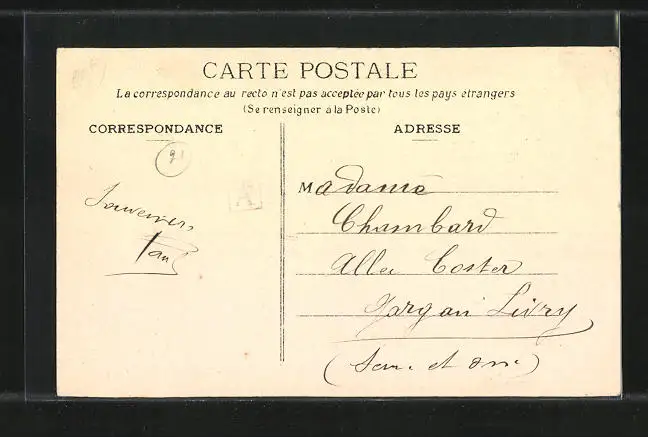 CARTE POSTALE
La correspondance au recto n'est pas acceptée par tous les pays étrangers
(Se renseigner à la Poste)
CORRESPONDANCE
91
Souvenirs
Paul
ADRESSE
Madame
Chambard
Allee Coster
Gargan Livry
(Seine et Oise)